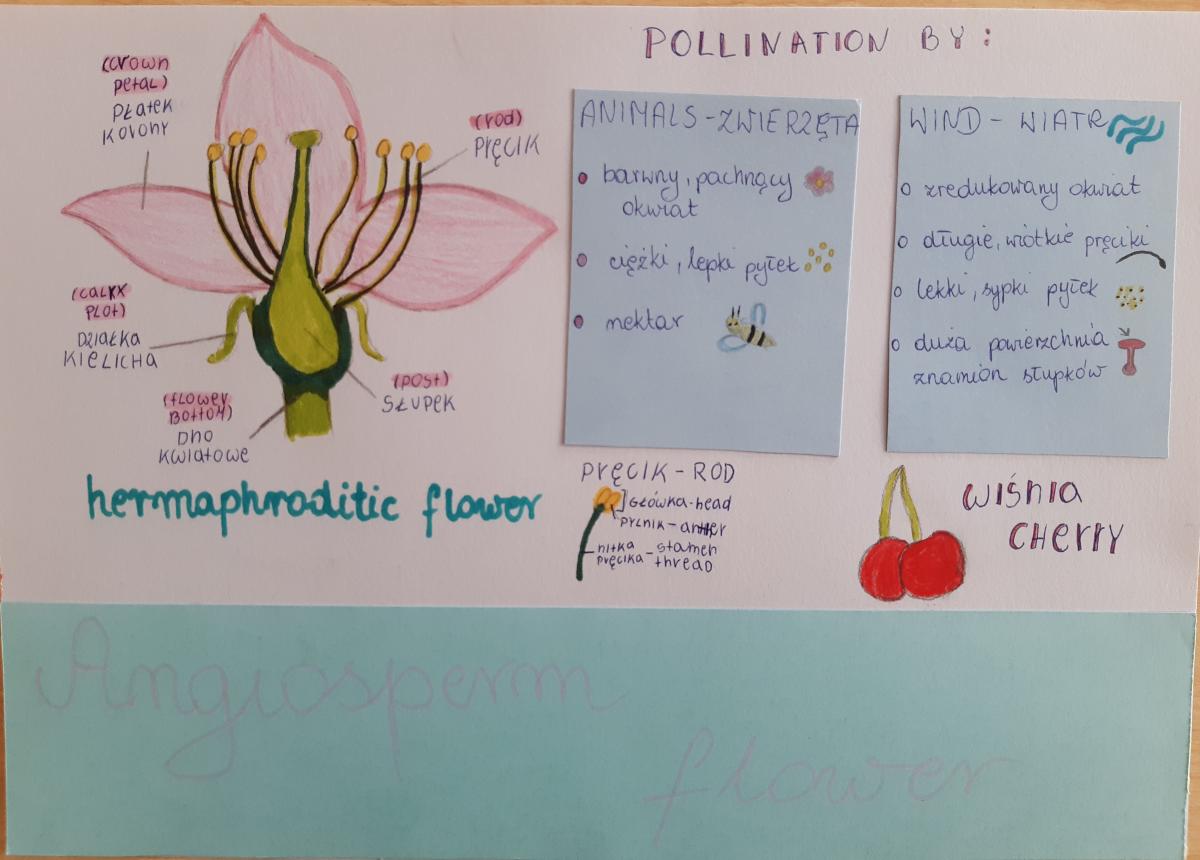 (crown
petal)
PŁatek
Korony
(rod)
PRĘCIK
(calyx
PLOT)
DZIAŁKA
KIELICHA
(flower
Bottom)
DNO
KWIATOWE
(POST)
SŁUPEK
hermaphroditic flower
POLLINATION BY:
ANIMALS-ZWIERZĘTA
barwny, pachnący
okwiat
ciężki, lepki pyłek
nektar
WIND - WIATR
zredukowany okwiat
długie, wiotkie pręciki
lekki, sypki pyłek
duża powierzchnia
znamion słupków
PRĘCIK-ROD
GŁÓWKA-head
PYLNIK-anther
nitka - stamen
PRĘCIKA thread
WIŚNIA
CHERRY
Angiosperm
flower